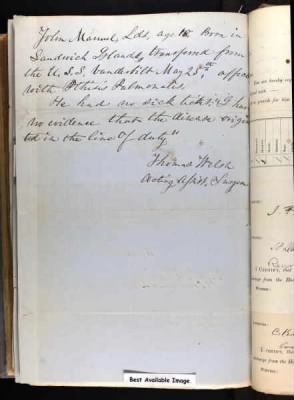 John Manuel, Lds, age 18 Born in
Sandwich Islands, transfered from
the U.S.S. Vanderbilt May 25th, affected
with Pthisis Pulmonalis.
He had no sick ticket & I have
no evidence that the disease origina
ted in the line of duty"
Thomas Welsh
Acting Asst, Surgeon
You are hereby req
I CERTIFY, that
charge from the Ho
I CERTIFY, that
charge from the Ho
Best Available Image